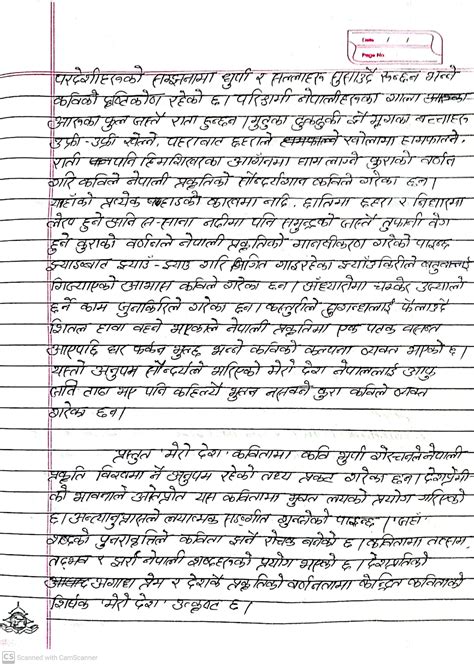 Date / /
Page No
परदेशीहरूको सम्झनामा धुपी र सल्लाहरू सुसाउँदै रून्छन् भन्ने
कविको दृष्टिकोण रहेको छ। परिश्रमी नेपालीहरूका गाला
आरूका फूल जस्तै राता हुन्छन्। मुटुका ढुकढुकी झैँ मृगका बच्चाहरू
उफ्री-उफ्री खेल्ने, पहराबाट छहराले खोलामा हामफाल्ने,
राती पनि हिमशिखरका आगँनमा घाम लाग्ने कुराको वर्णन
गरि कविले नेपाली प्रकृतिको सौन्दर्यगान कविले गरेका छन्।
यहाँको प्रत्येक पहाडको काखमा नदि, छातिमा छहरा र निधारमा
हुने अनि स-साना नदीमा पनि समुन्द्रको जस्तै तुफानी वेग
हुने कुराको वर्णनले नेपाली प्रकृतिको मानवीकरण गरेको पाइन्छ
झ्याउँ-झ्याउँ गरि गाइरहेका झ्याउँकिरीले
गिज्याएको आभास कविले गरेका छन्। अँध्यारोमा चम्केर उज्यालो
छर्ने काम जुनकिरिले गरेका छन्। कस्तुरीले सुगन्धलाई फैलाउँदै
शितल हावा बहने भएकाले नेपाली प्रकृतिमा एक पटक
आएपछि घर फर्कन भुल्छ भन्ने कविको कल्पना व्यक्त भएको छ।
यस्तो अनुपम सौन्दर्यले भरिएको मेरो देश नेपाललाई आफू
जति टाढा भए पनि कहिल्यै भुल्न नसक्ने कुरा कविले व्यक्त
गरेका छन्।
प्रस्तुत 'मेरो देश' कवितामा कवि भुपी शेरचनले नेपाली
प्रकृति विश्वमा नै अनुपम रहेको तथ्य प्रकट गरेका छन्। देशप्रेमी
को भावनाले ओतप्रोत यस कवितामा मुक्त लयको प्रयोग गरिएको
छ। अन्त्यानुप्रासले लयात्मक साङ्गीत गुन्जेको पाइन्छ। 'जहाँ'
शब्दको पुनरावृत्तिले कविता झनै रोचक बनेको छ। कवितामा तत्सम,
तद्भव र झर्रा नेपाली शब्दहरूको प्रयोग भएको छ। देशप्रतिको
अगाध प्रेम र देशकै प्रकृतिको वर्णनतामा केन्द्रित कविताको
शिर्षक 'मेरो देश' उत्कृष्ट छ।
CS Scanned with CamScanner